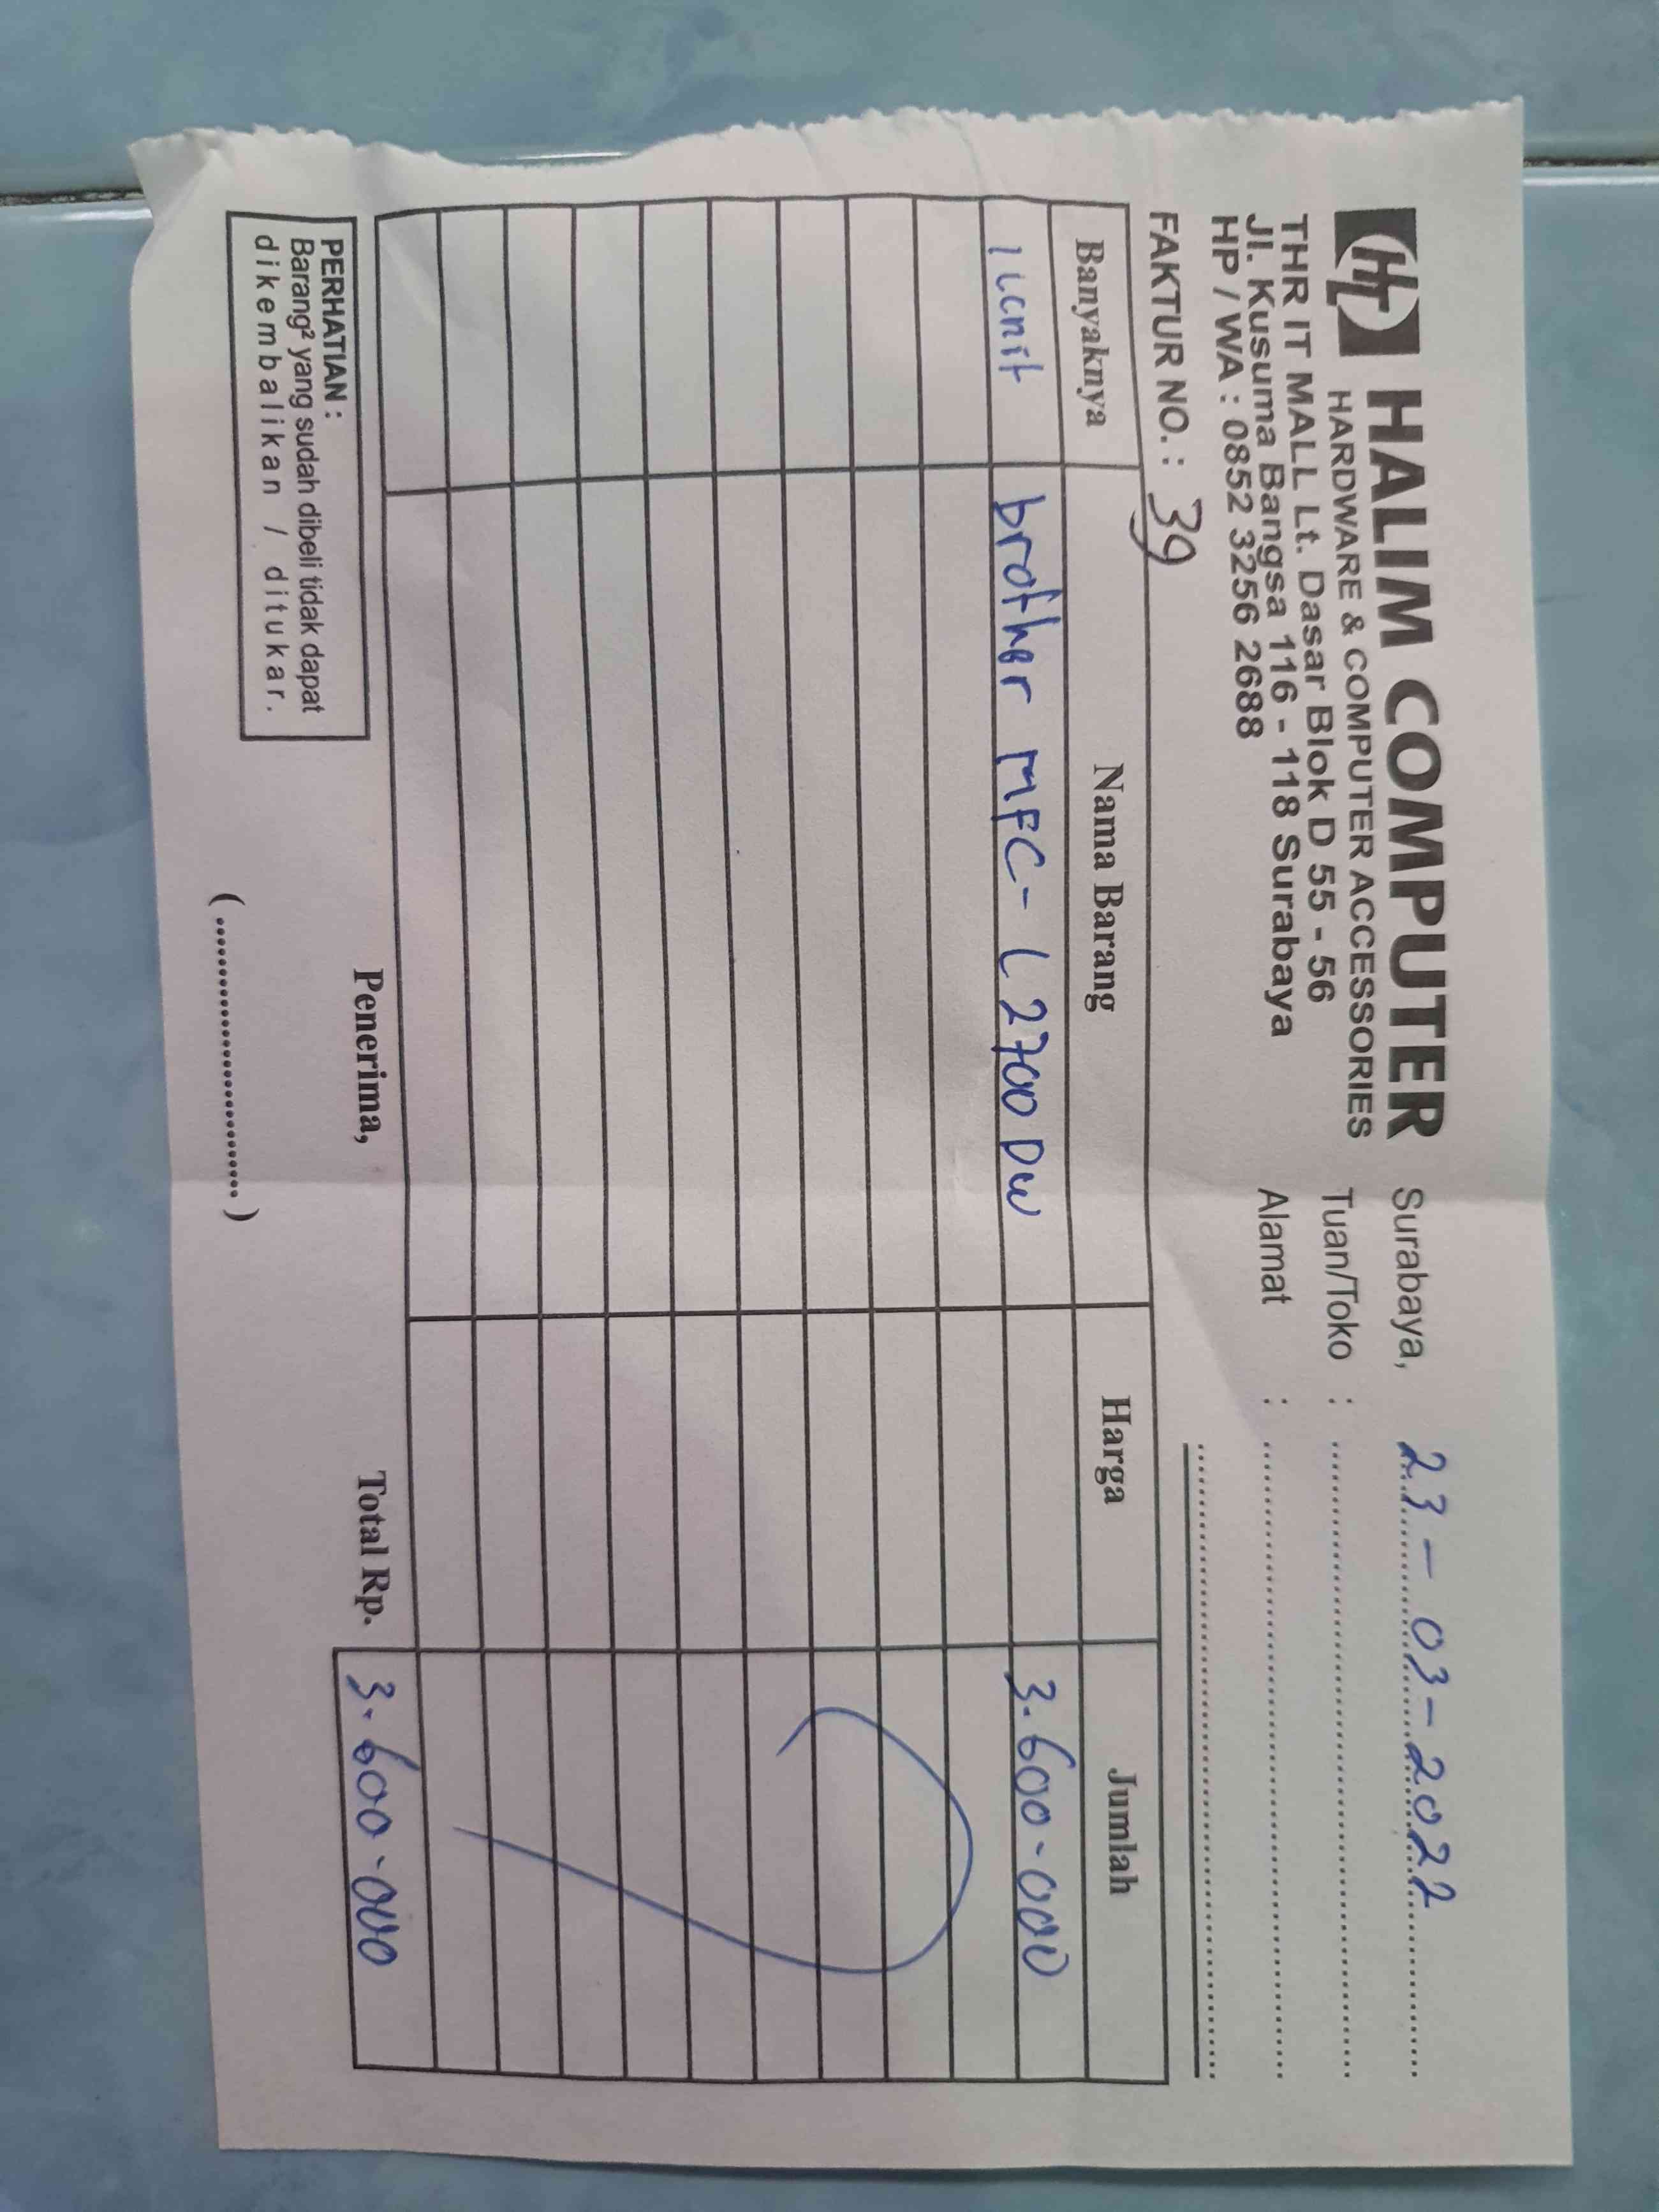 HL HALIM COMPUTER
HARDWARE & COMPUTER ACCESSORIES
THR IT MALL Lt. Dasar Blok D 55 - 56
Jl. Kusuma Bangsa 116 - 118 Surabaya
HP / WA : 0852 3256 2688
Surabaya, 23 - 03 - 2022
Tuan/Toko :
Alamat :
FAKTUR NO. : 39
Banyaknya Nama Barang Harga Jumlah
1 unit brother MFC-L2700DW 3.600.000
Total Rp. 3.600.000
PERHATIAN :
Barang² yang sudah dibeli tidak dapat
dikembalikan / ditukar.
Penerima,
(..............................)